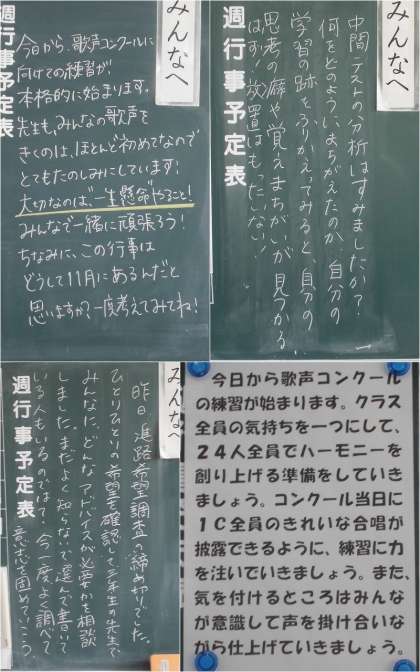 みんなへ
週行事予定表
今日から、歌声コンクールに
向けての練習が、
本格的に始まります。
先生も、みんなの歌声を
きくのは、ほとんど初めてなので
とてもたのしみにしています!
大切なのは、一生懸命やること!
みんなで一緒に頑張ろう!
ちなみに、この行事は
どうして11月にあるんだと
思いますか?一度考えてみてね!
みんなへ
週行事予定表
中間テストの分析はすみましたか?
何をどのように、まちがえたのか、自分の
学習の跡をふりかえってみると、自分の
思考の癖や覚えまちがいが見つかる
はず!放置はもったいない!
みんなへ
週行事予定表
昨日、進路希望調査の締め切りでした。
ひとりひとりの希望を確認して三年生の先生で
みんなに、どんなアドバイスが必要かを相談
しました。まだよく知らないで選んで書いて
いる人もいるのでは?今一度よく調べて
意志を固めていこう。
今日から歌声コンクール
の練習が始まります。クラス
全員の気持ちを一つにして、
24人全員でハーモニーを
創り上げる準備をしていき
ましょう。コンクール当日に
1C全員のきれいな合唱が
披露できるように、練習に力
を注いでいきましょう。また、
気を付けるところはみんな
が意識して声を掛け合いな
がら仕上げていきましょう。